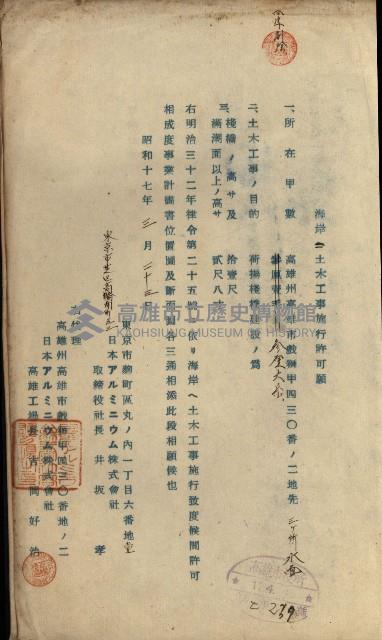 海岸ニ土木工事施行許可願
一、所在甲數 高雄州高雄市戲獅甲四三〇番ノ二地先
二、土木工事ノ目的 荷揚棧橋建設ノ為
三、棧橋ノ高サ及 拾壹尺
滿潮面以上ノ高サ 貳尺八寸
右明治三十二年律令第二十五號ニ依リ海岸ヘ土木工事施行致度候間許可
相成度事業計畫書位置圖及斷面圖各三通相添此段相願候也
昭和十七年三月二十三日
東京市麹町區丸ノ內一丁目六番地
日本アルミニウム株式會社
取締役社長 井坂孝
右代理
高雄州高雄市戲獅甲四三〇番地ノ二
日本アルミニウム株式會社
高雄工場長 吉岡好治
高雄市立歷史博物館
KAOHSIUNG MUSEUM OF HISTORY
17.4